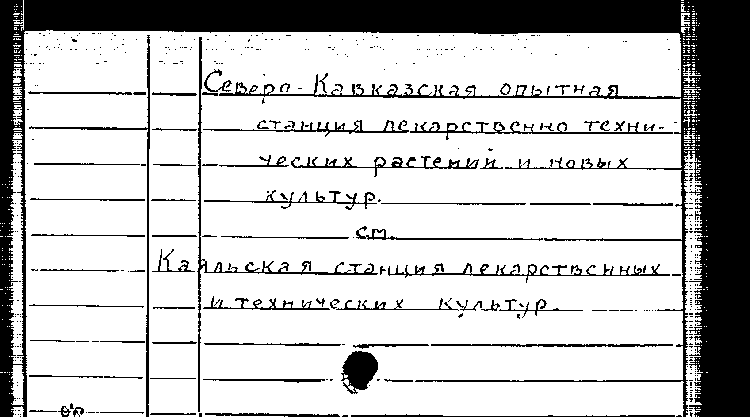 Северо-Кавказская опытная
станция лекарственно техни-
ческих растений и новых
культур.
см.
Каяльская станция лекарственных
и технических культур.